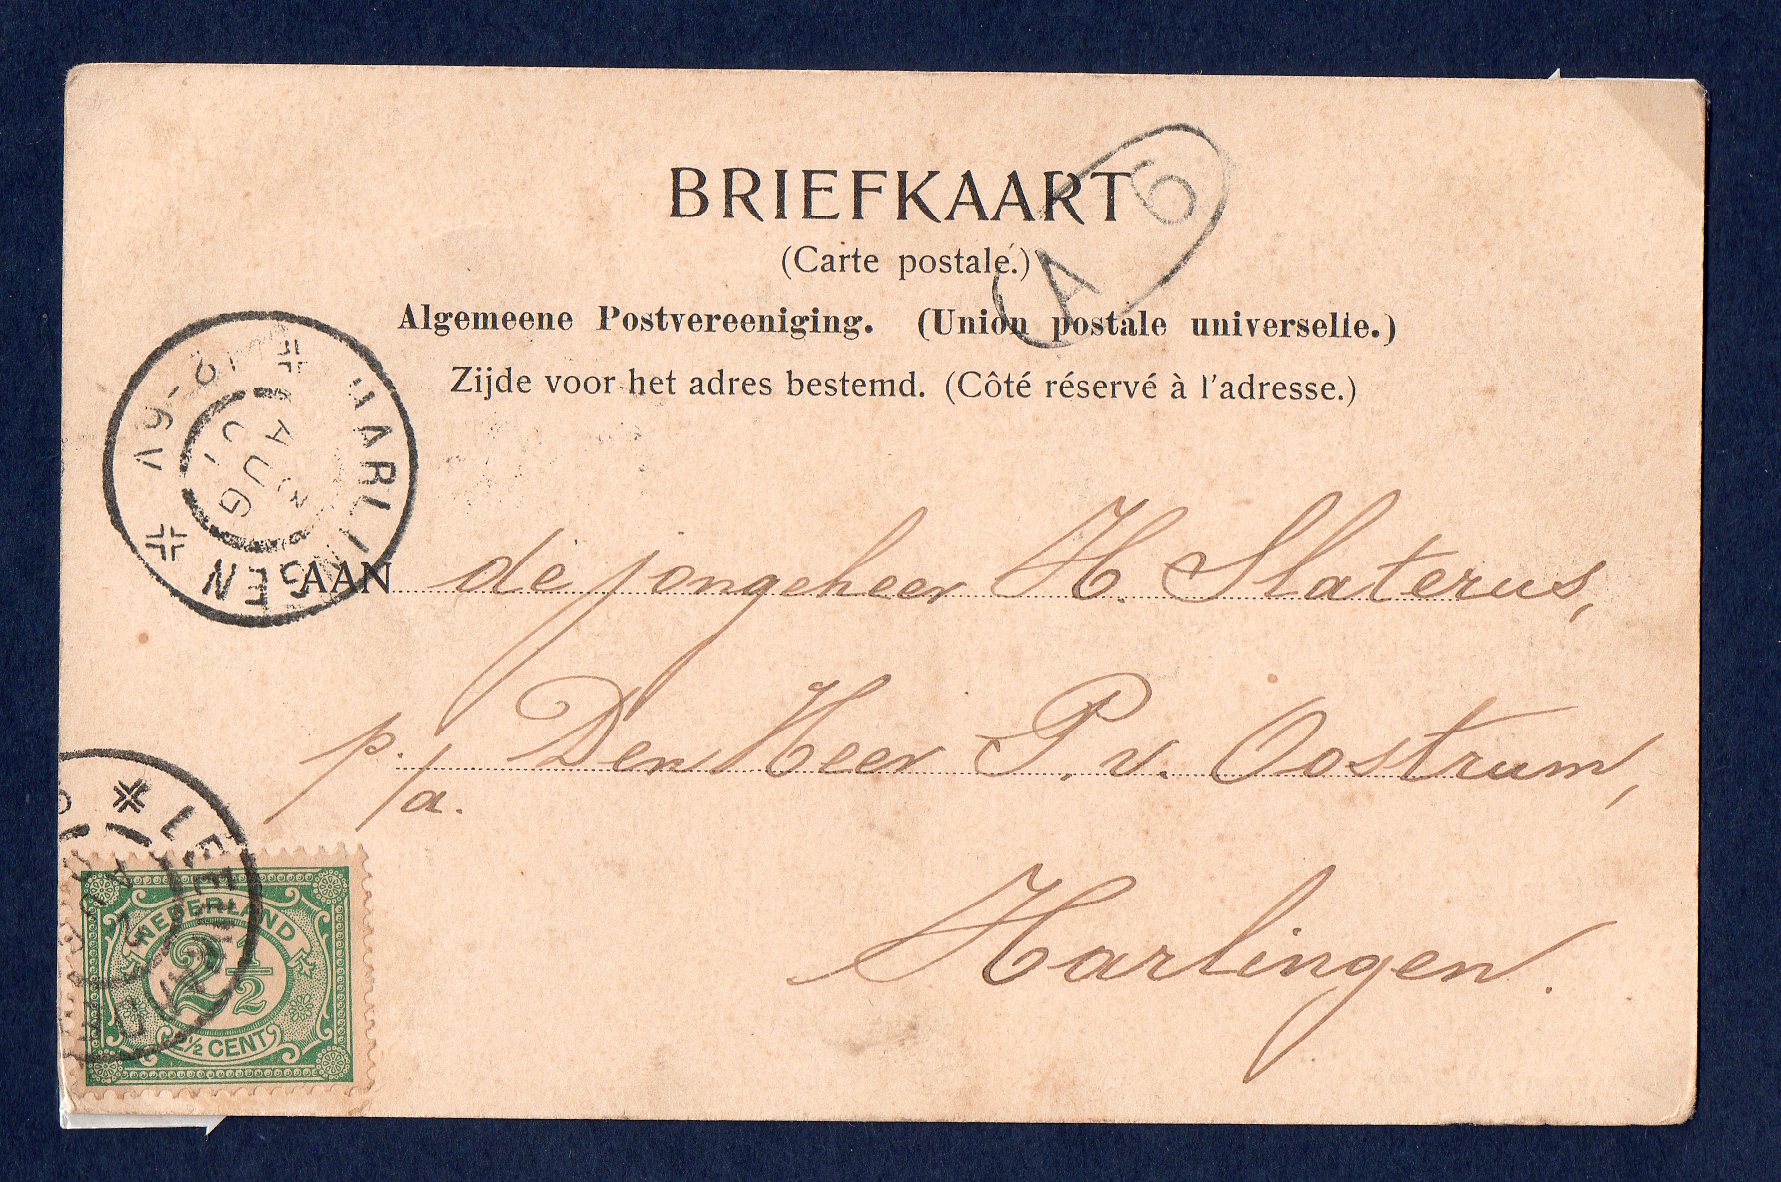 BRIEFKAART
(Carte postale.)
Algemeene Postvereeniging. (Union postale universelle.)
Zijde voor het adres bestemd. (Côté réservé à l'adresse.)
A 6
HARLINGEN
3
AUG
AAN de jongeheer H. Slaterus,
p./a. Den Heer P. v. Oostrum,
Harlingen.
LEE
AUG
NEDERLAND
2 1/2
2½ CENT